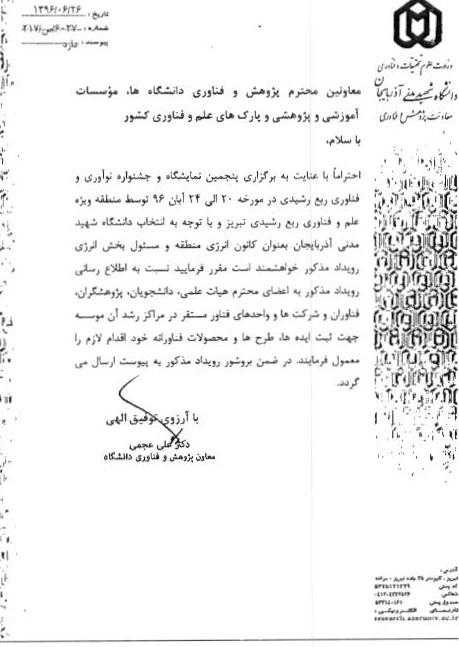 تاریخ: ۱۳۹۶/۰۶/۲۶
شماره:
پیوست: دارد
وزارت علوم تحقیقات و فناوری
دانشگاه شهید مدنی آذربایجان
معاونت پژوهش و فناوری
معاونین محترم پژوهش و فناوری دانشگاه ها، مؤسسات
آموزشی و پژوهشی و پارک های علم و فناوری کشور
با سلام،
احتراماً با عنایت به برگزاری پنجمین نمایشگاه و جشنواره نوآوری و
فناوری ربع رشیدی در مورخه ۲۰ الی ۲۴ آبان ۹۶ توسط منطقه ویژه
علم و فناوری ربع رشیدی تبریز و با توجه به انتخاب دانشگاه شهید
مدنی آذربایجان بعنوان کانون انرژی منطقه و مسئول بخش انرژی
رویداد مذکور خواهشمند است مقرر فرمایید نسبت به اطلاع رسانی
رویداد مذکور به اعضای محترم هیات علمی، دانشجویان، پژوهشگران،
فناوران و شرکت ها و واحدهای فناور مستقر در مراکز رشد آن موسسه
جهت ثبت ایده ها، طرح ها و محصولات فناورانه خود اقدام لازم را
معمول فرمایند. در ضمن بروشور رویداد مذکور به پیوست ارسال می
گردد.
با آرزوی توفیق الهی
دکتر علی عجمی
معاون پژوهش و فناوری دانشگاه
آدرس:
تبریز، کیلومتر ۳۵ جاده تبریز - مراغه
کد پستی
تلفکس
صندوق پستی ۵۳۷۱۴-۱۶۱
تارنمای الکترونیکی:
research.azaruniv.ac.ir